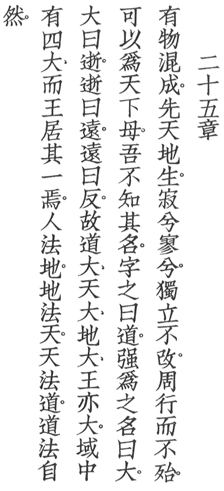 二十五章
有物混成。先天地生。寂兮寥兮。獨立不改。周行而不殆。
可以爲天下母。吾不知其名。字之曰道。强爲之名曰大。
大曰逝。逝曰遠。遠曰反。故道大、天大、地大、王亦大。域中
有四大、而王居其一焉。人法地。地法天。天法道。道法自
然。